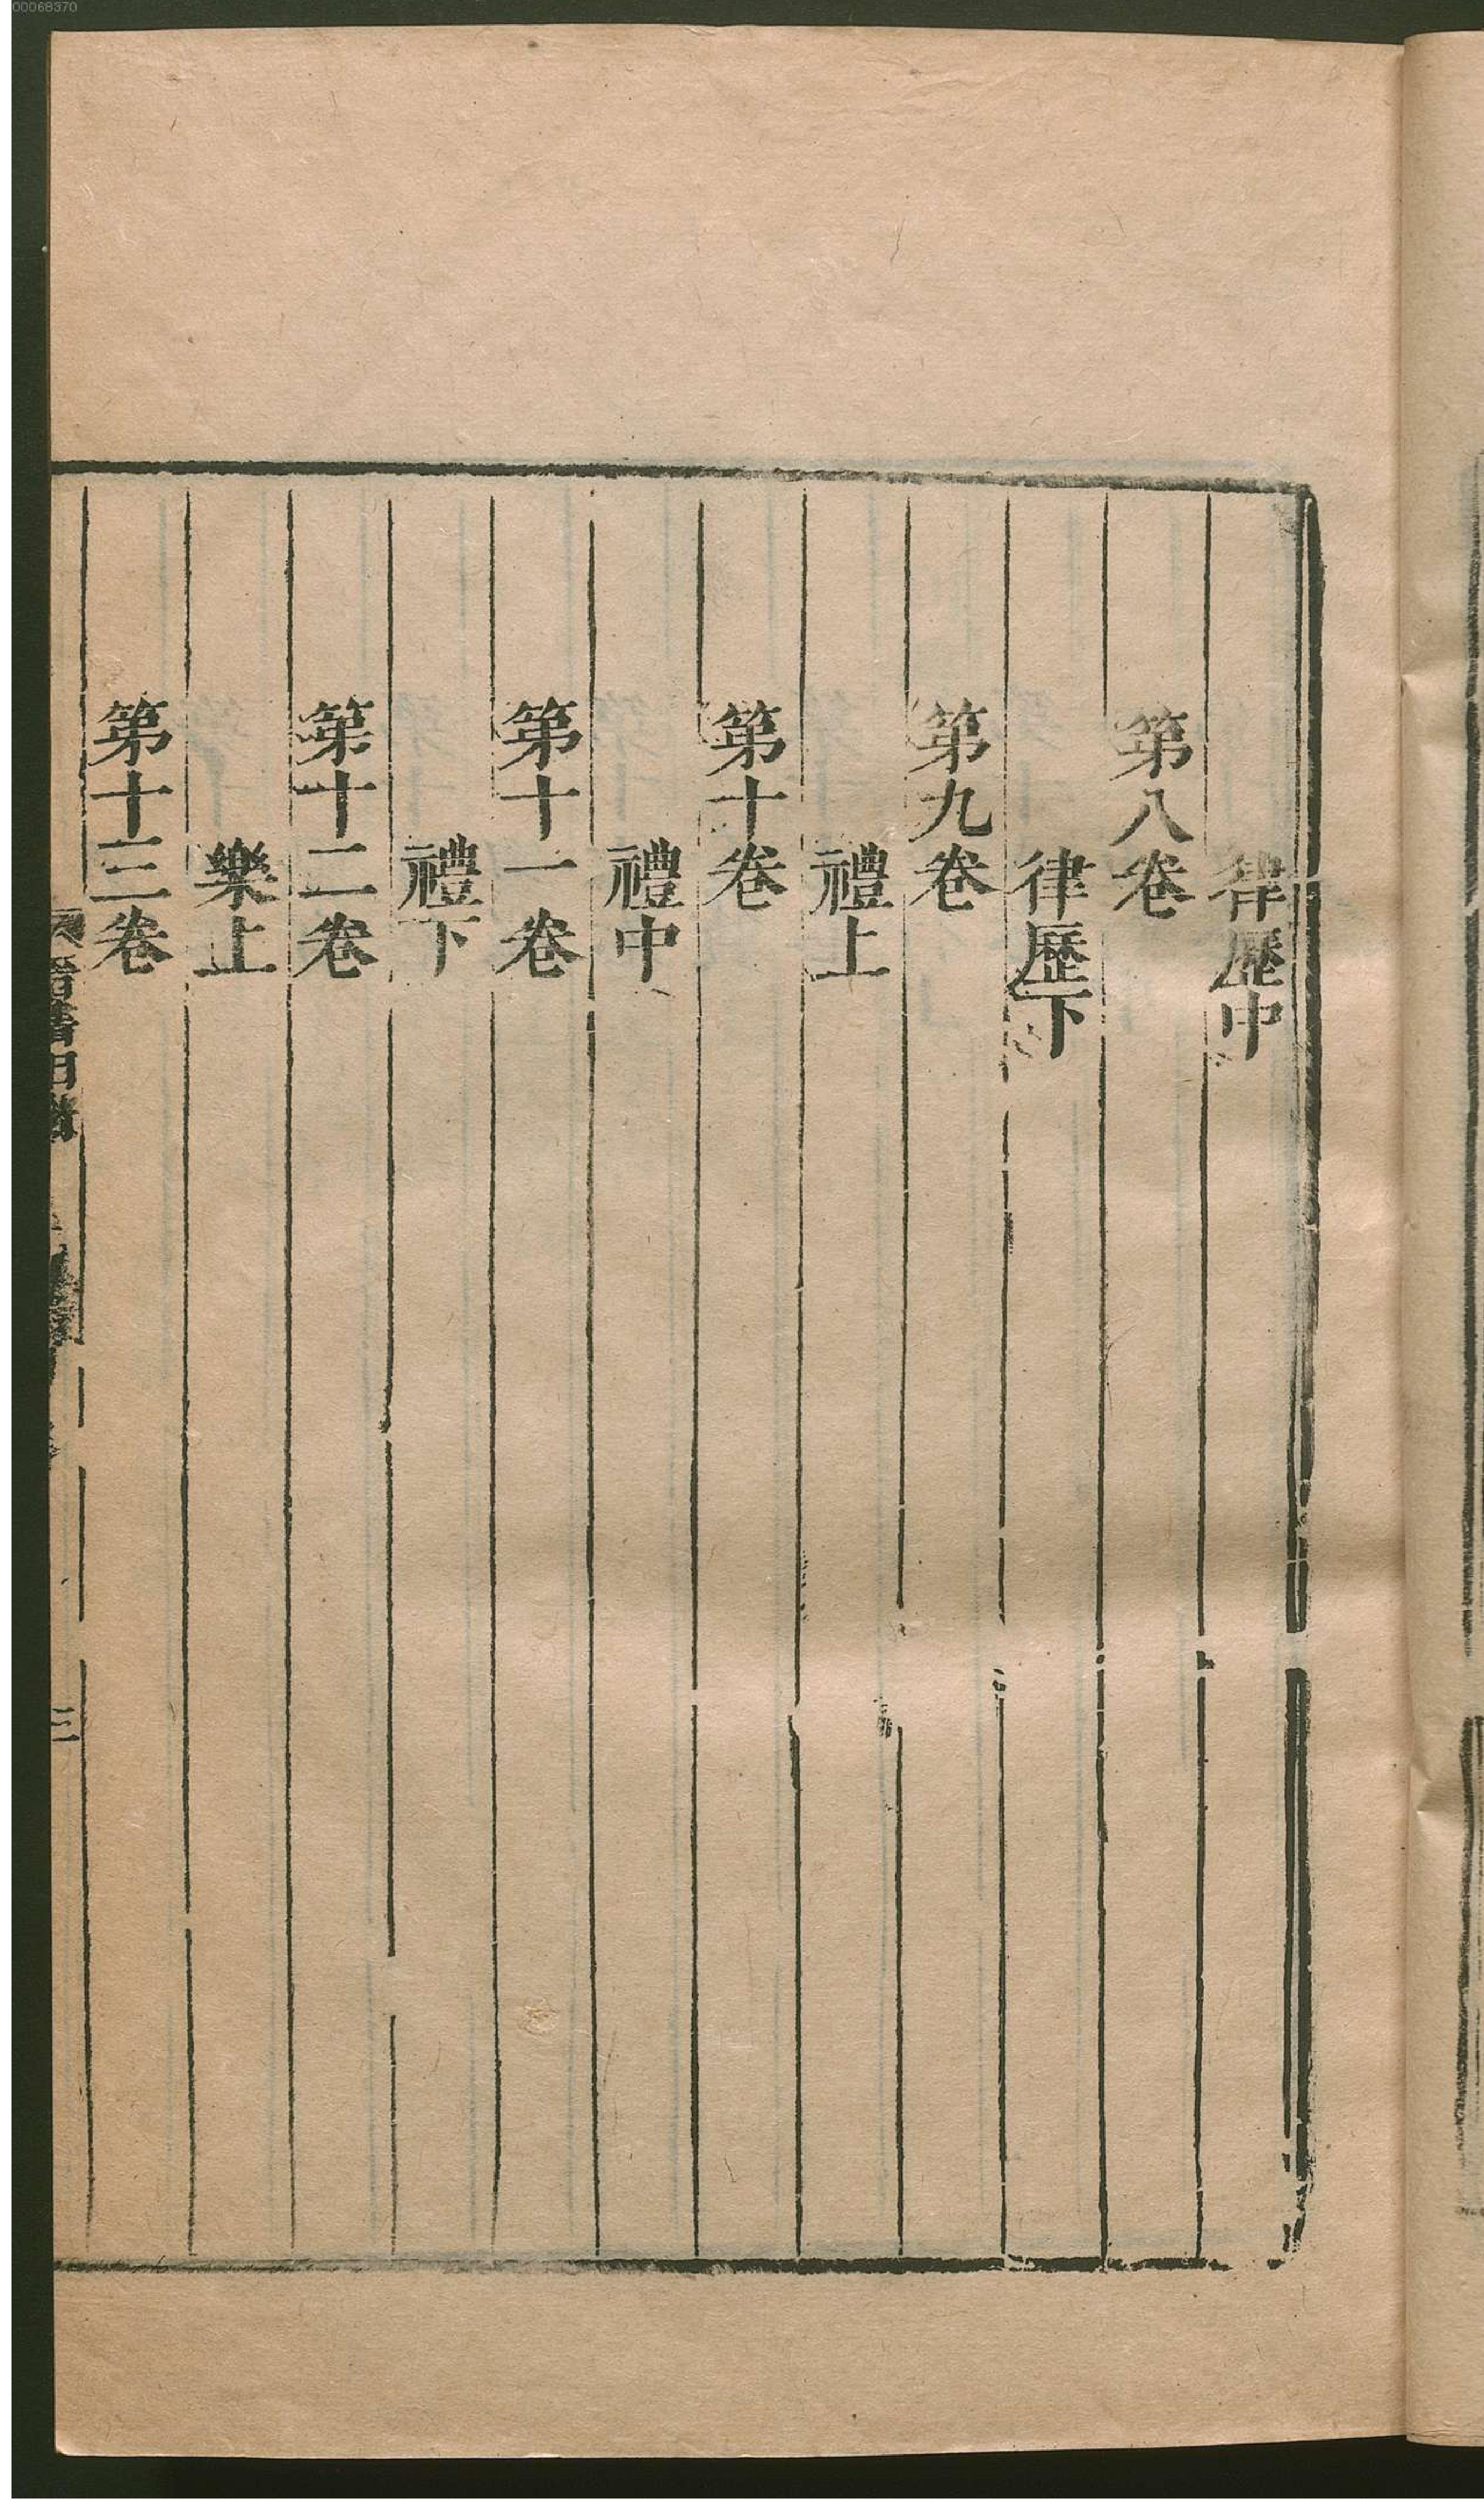 00068370
律歷中
第八卷
律歷下
第九卷
禮上
第十卷
禮中
第十一卷
禮下
第十二卷
樂上
第十三卷
晉書目錄
三